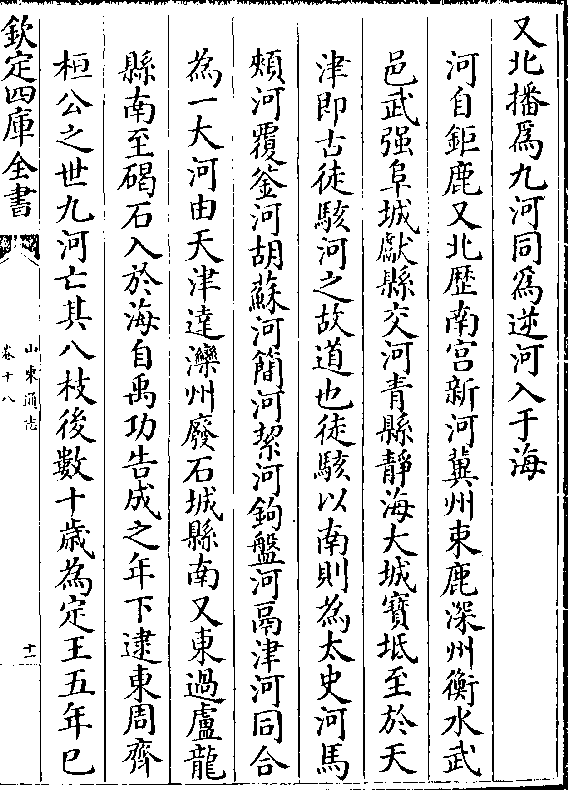 又北播爲九河同爲逆河入于海
河自鉅鹿又北歴南宫新河冀州束鹿深州衡水武
邑武强阜城獻縣交河青縣靜海大城寶坻至於天
津即古徒駭河之故道也徒駭以南則為太史河馬
頰河覆釜河胡蘇河簡河絜河鉤盤河鬲津河同合
為一大河由天津達灤州廢石城縣南又東過盧龍
縣南至碣石入於海自禹功告成之年下逮東周齊
桓公之世九河亡其八枝後數十歳為定王五年已
欽定四庫全書
山東通志
卷十八
十二